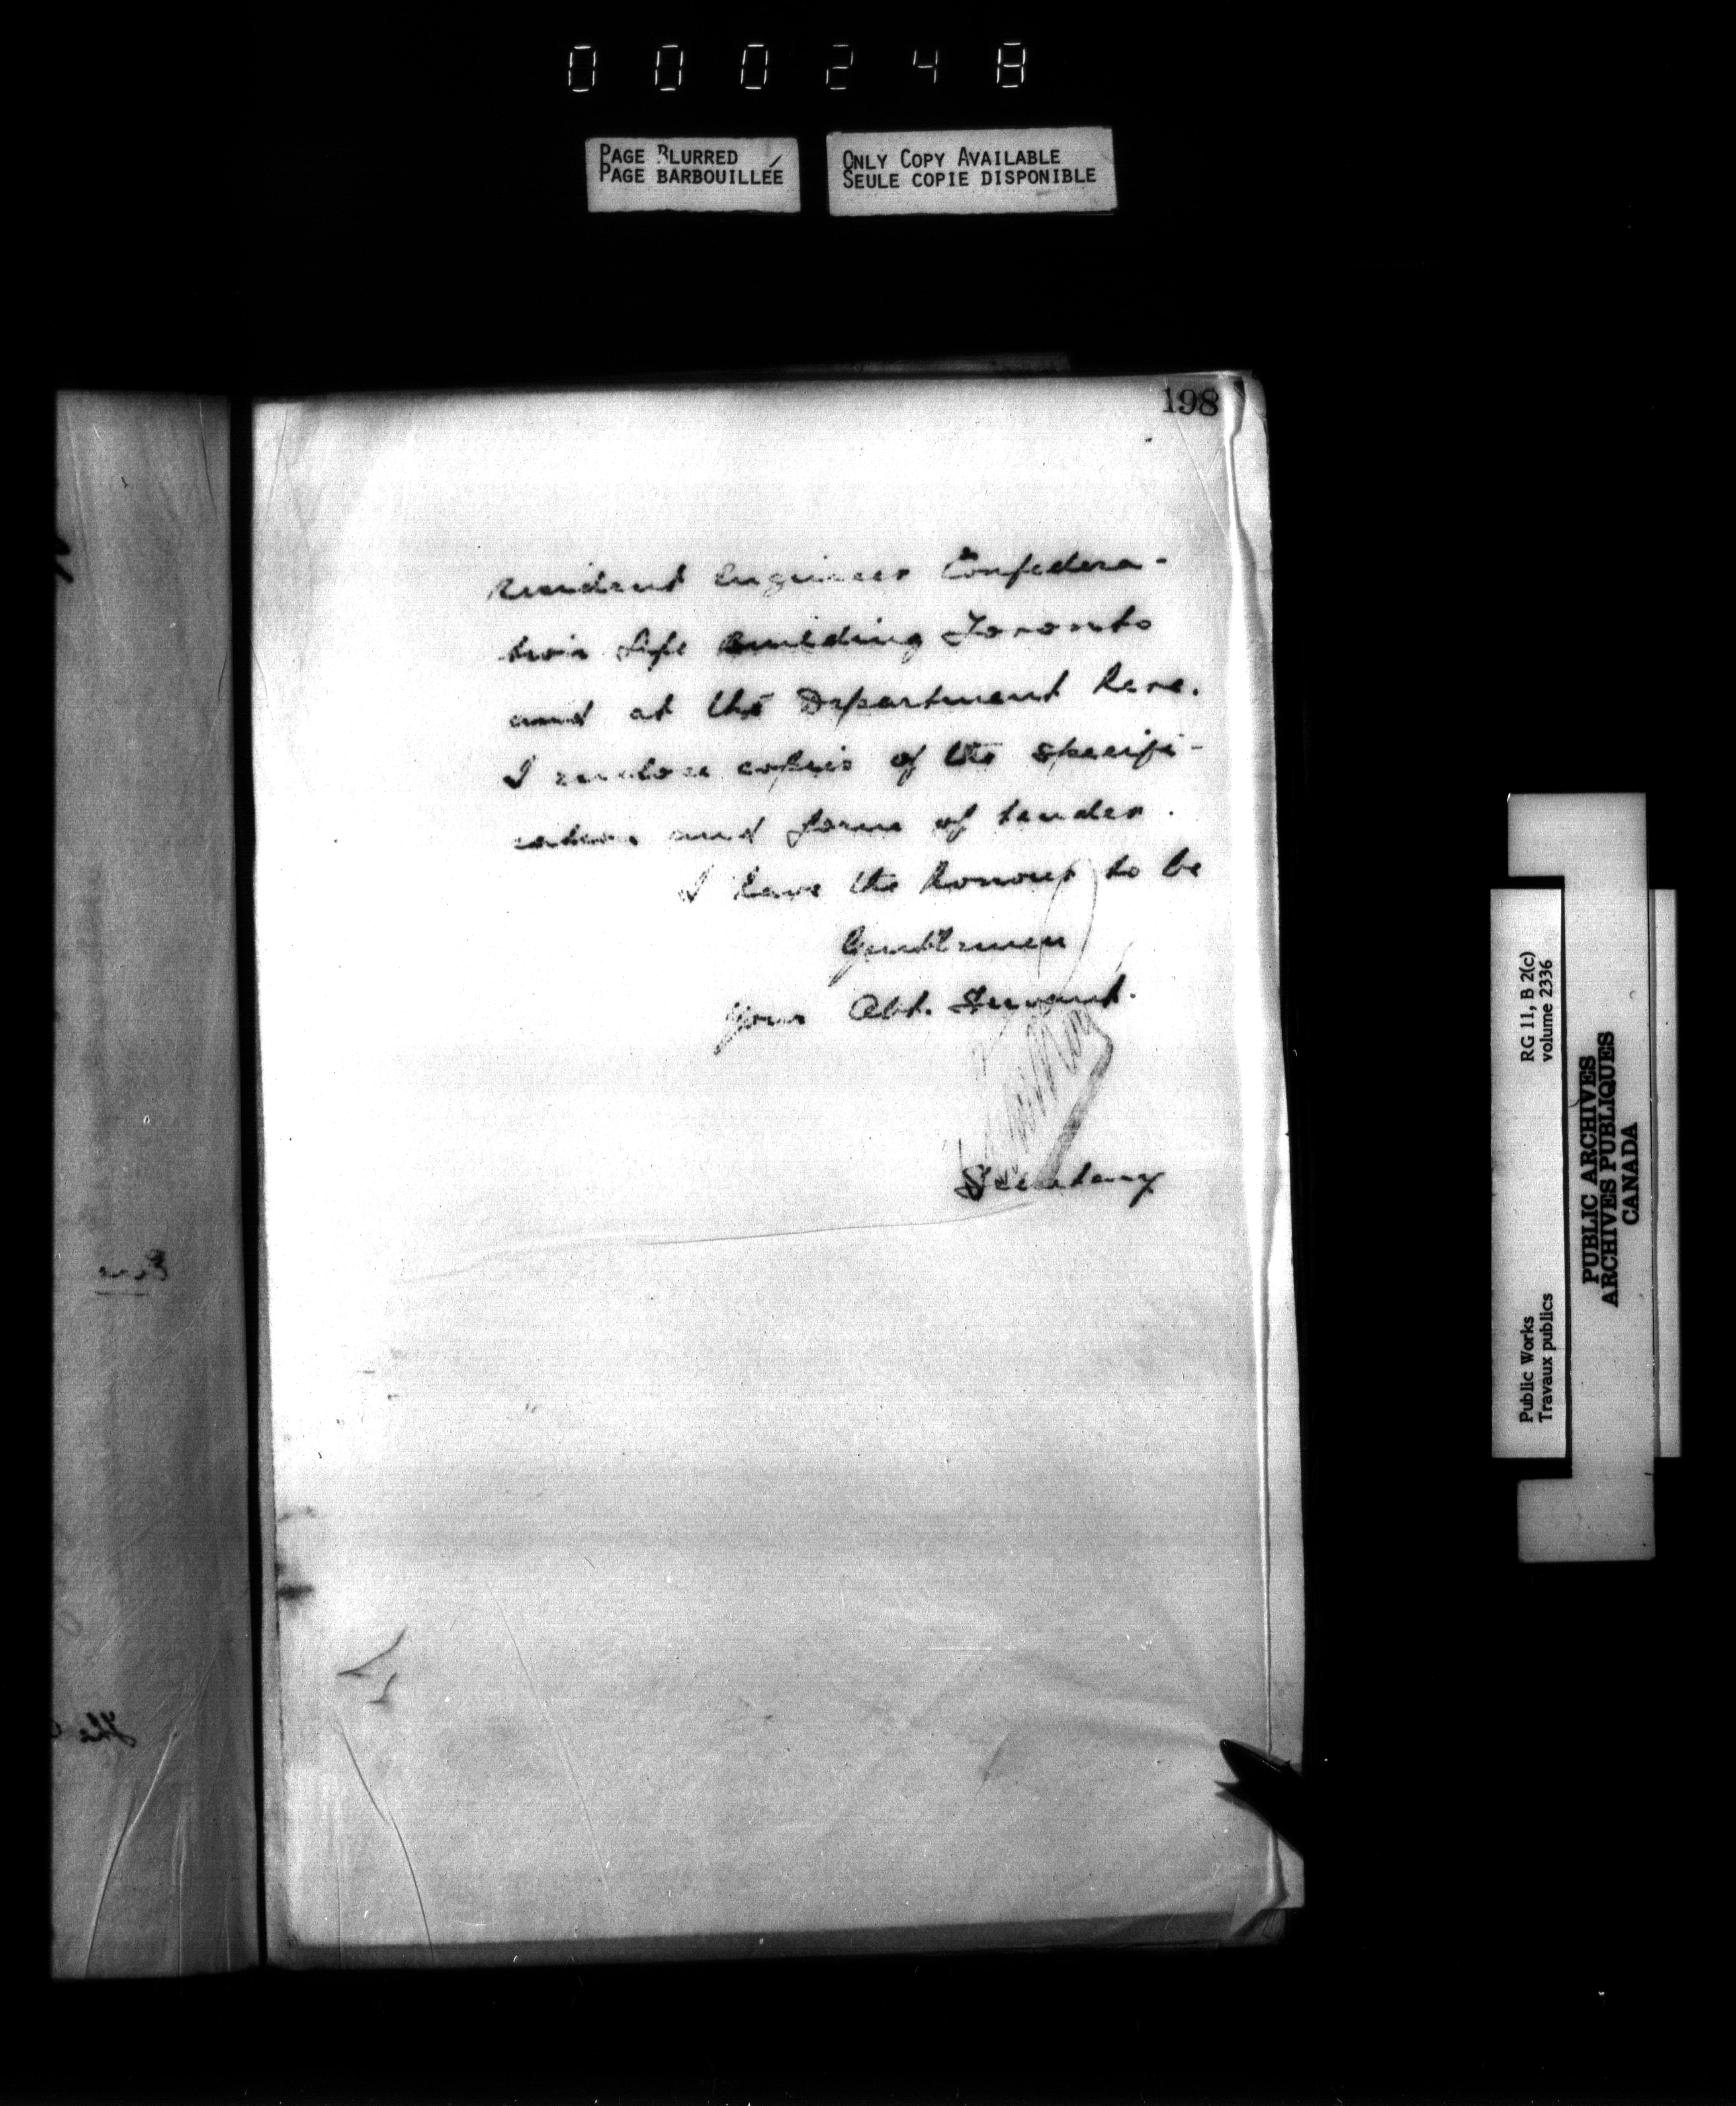 000248
PAGE BLURRED
PAGE BARBOUILLÉE
ONLY COPY AVAILABLE
SEULE COPIE DISPONIBLE
198
resident Engineer Confedera-
tion Life Building Toronto
and at the Department here.
I enclose copies of the specifi-
cation and form of tender.
I have the honour to be
Gentlemen
Your Obt. Servant.
Secretary
RG 11, B 2(c)
volume 2336
Public Works
Travaux publics
PUBLIC ARCHIVES
ARCHIVES PUBLIQUES
CANADA